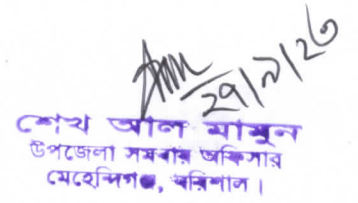 ২৭/৯/২৩
শেখ আল মামুন
উপজেলা সমবায় অফিসার
মেহেন্দিগঞ্জ, বরিশাল।